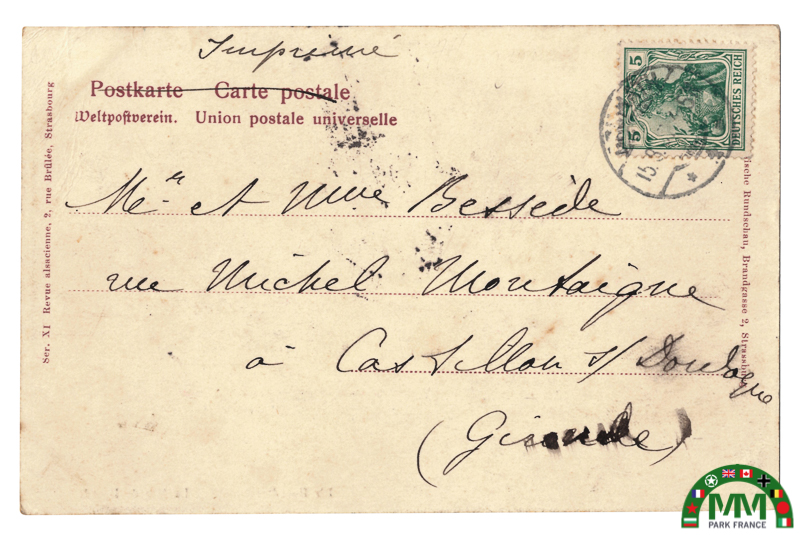 Imprimé
Postkarte Carte postale
Weltpostverein. Union postale universelle
5 5 DEUTSCHES REICH
15
Mr et Mme Bessède
rue Michel Montaigne
à Castillon s/ Dordogne
(Gironde)
Ser. XI Revue alsacienne, 2, rue Brûlée, Strasbourg
Rundschau, Brandgasse 2, Strassb
MM
PARK FRANCE